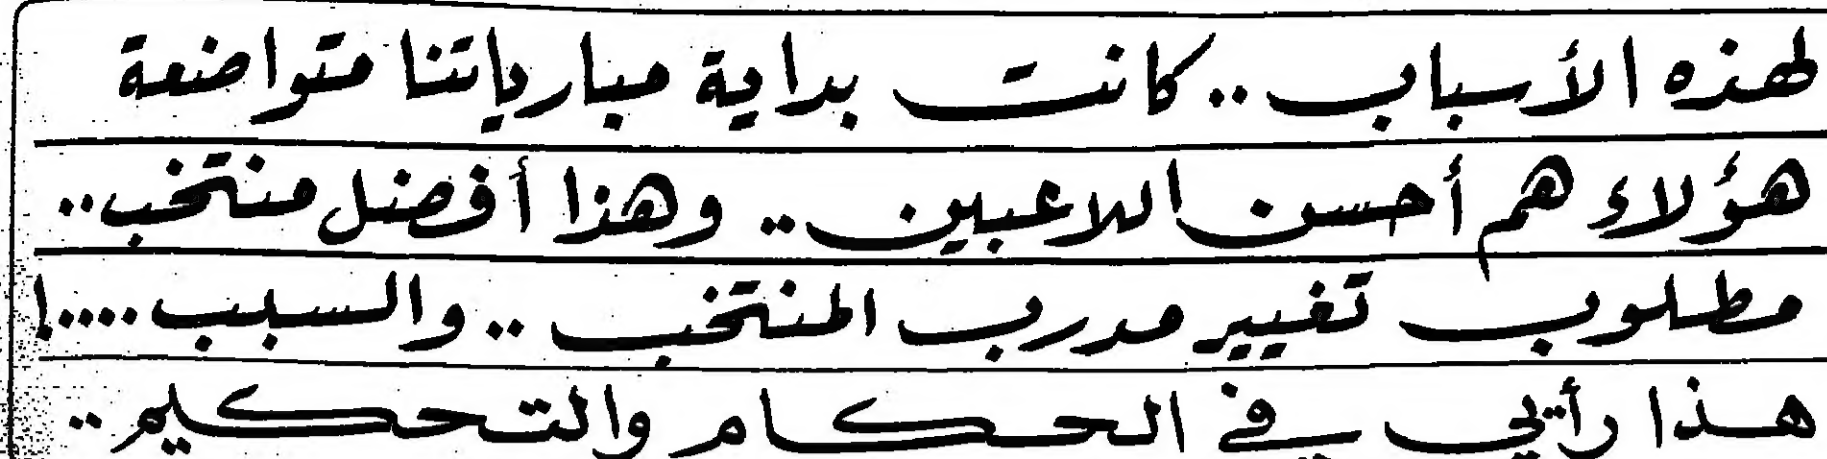 لهذه الأسباب .. كانت بداية مبارياتنا متواضعة
هؤلاء هم أحسن اللاعبين .. وهذا أفضل منتخب ..
مطلوب تغيير مدرب المنتخب .. والسبب ....!
هذا رأيي في الحكام والتحكيم ..